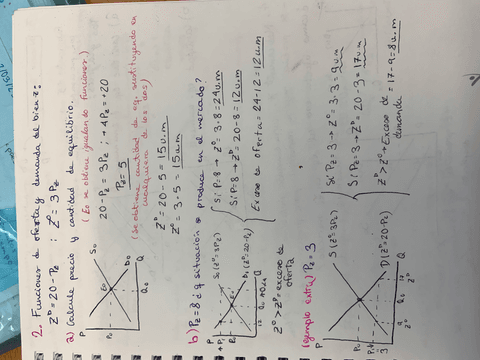 2. Funciones de oferta y demanda del bien z:
Z^D = 20 - P_z ; Z^O = 3P_z
a) Calcule precio y cantidad de equilibrio.
(Eo se obtiene igualando funciones)
20 - P_z = 3P_z ; +4P_z = +20
P_z = 5
(se obtiene cantidad de eq. sustituyendo en
cualquiera de las dos)
Z^D = 20 - 5 = 15 u.m
Z^O = 3 · 5 = 15 u.m
P
S_0
E_0
P_0
D_0
Q_0
Q
b) P_z = 8 ¿q situación se produce en el mercado?
Si P = 8 → Z^O = 3 · 8 = 24 u.m
Si P = 8 → Z^D = 20 - 8 = 12 u.m
Exceso de oferta = 24 - 12 = 12 u.m
P
S (Z^O = 3P_z)
D (Z^D = 20 - P_z)
Q
Z^O > Z^D = exceso de
oferta
(ejemplo extra) P_z = 3
Si P_z = 3 → Z^O = 3 · 3 = 9 u.m
Si P_z = 3 → Z^D = 20 - 3 = 17 u.m
Z^D > Z^O → Exceso de = 17 - 9 = 8 u.m
demanda
P
S (Z^O = 3P_z)
D (Z^D = 20 - P_z)
3
9
17
Q
Z^O
Z^D